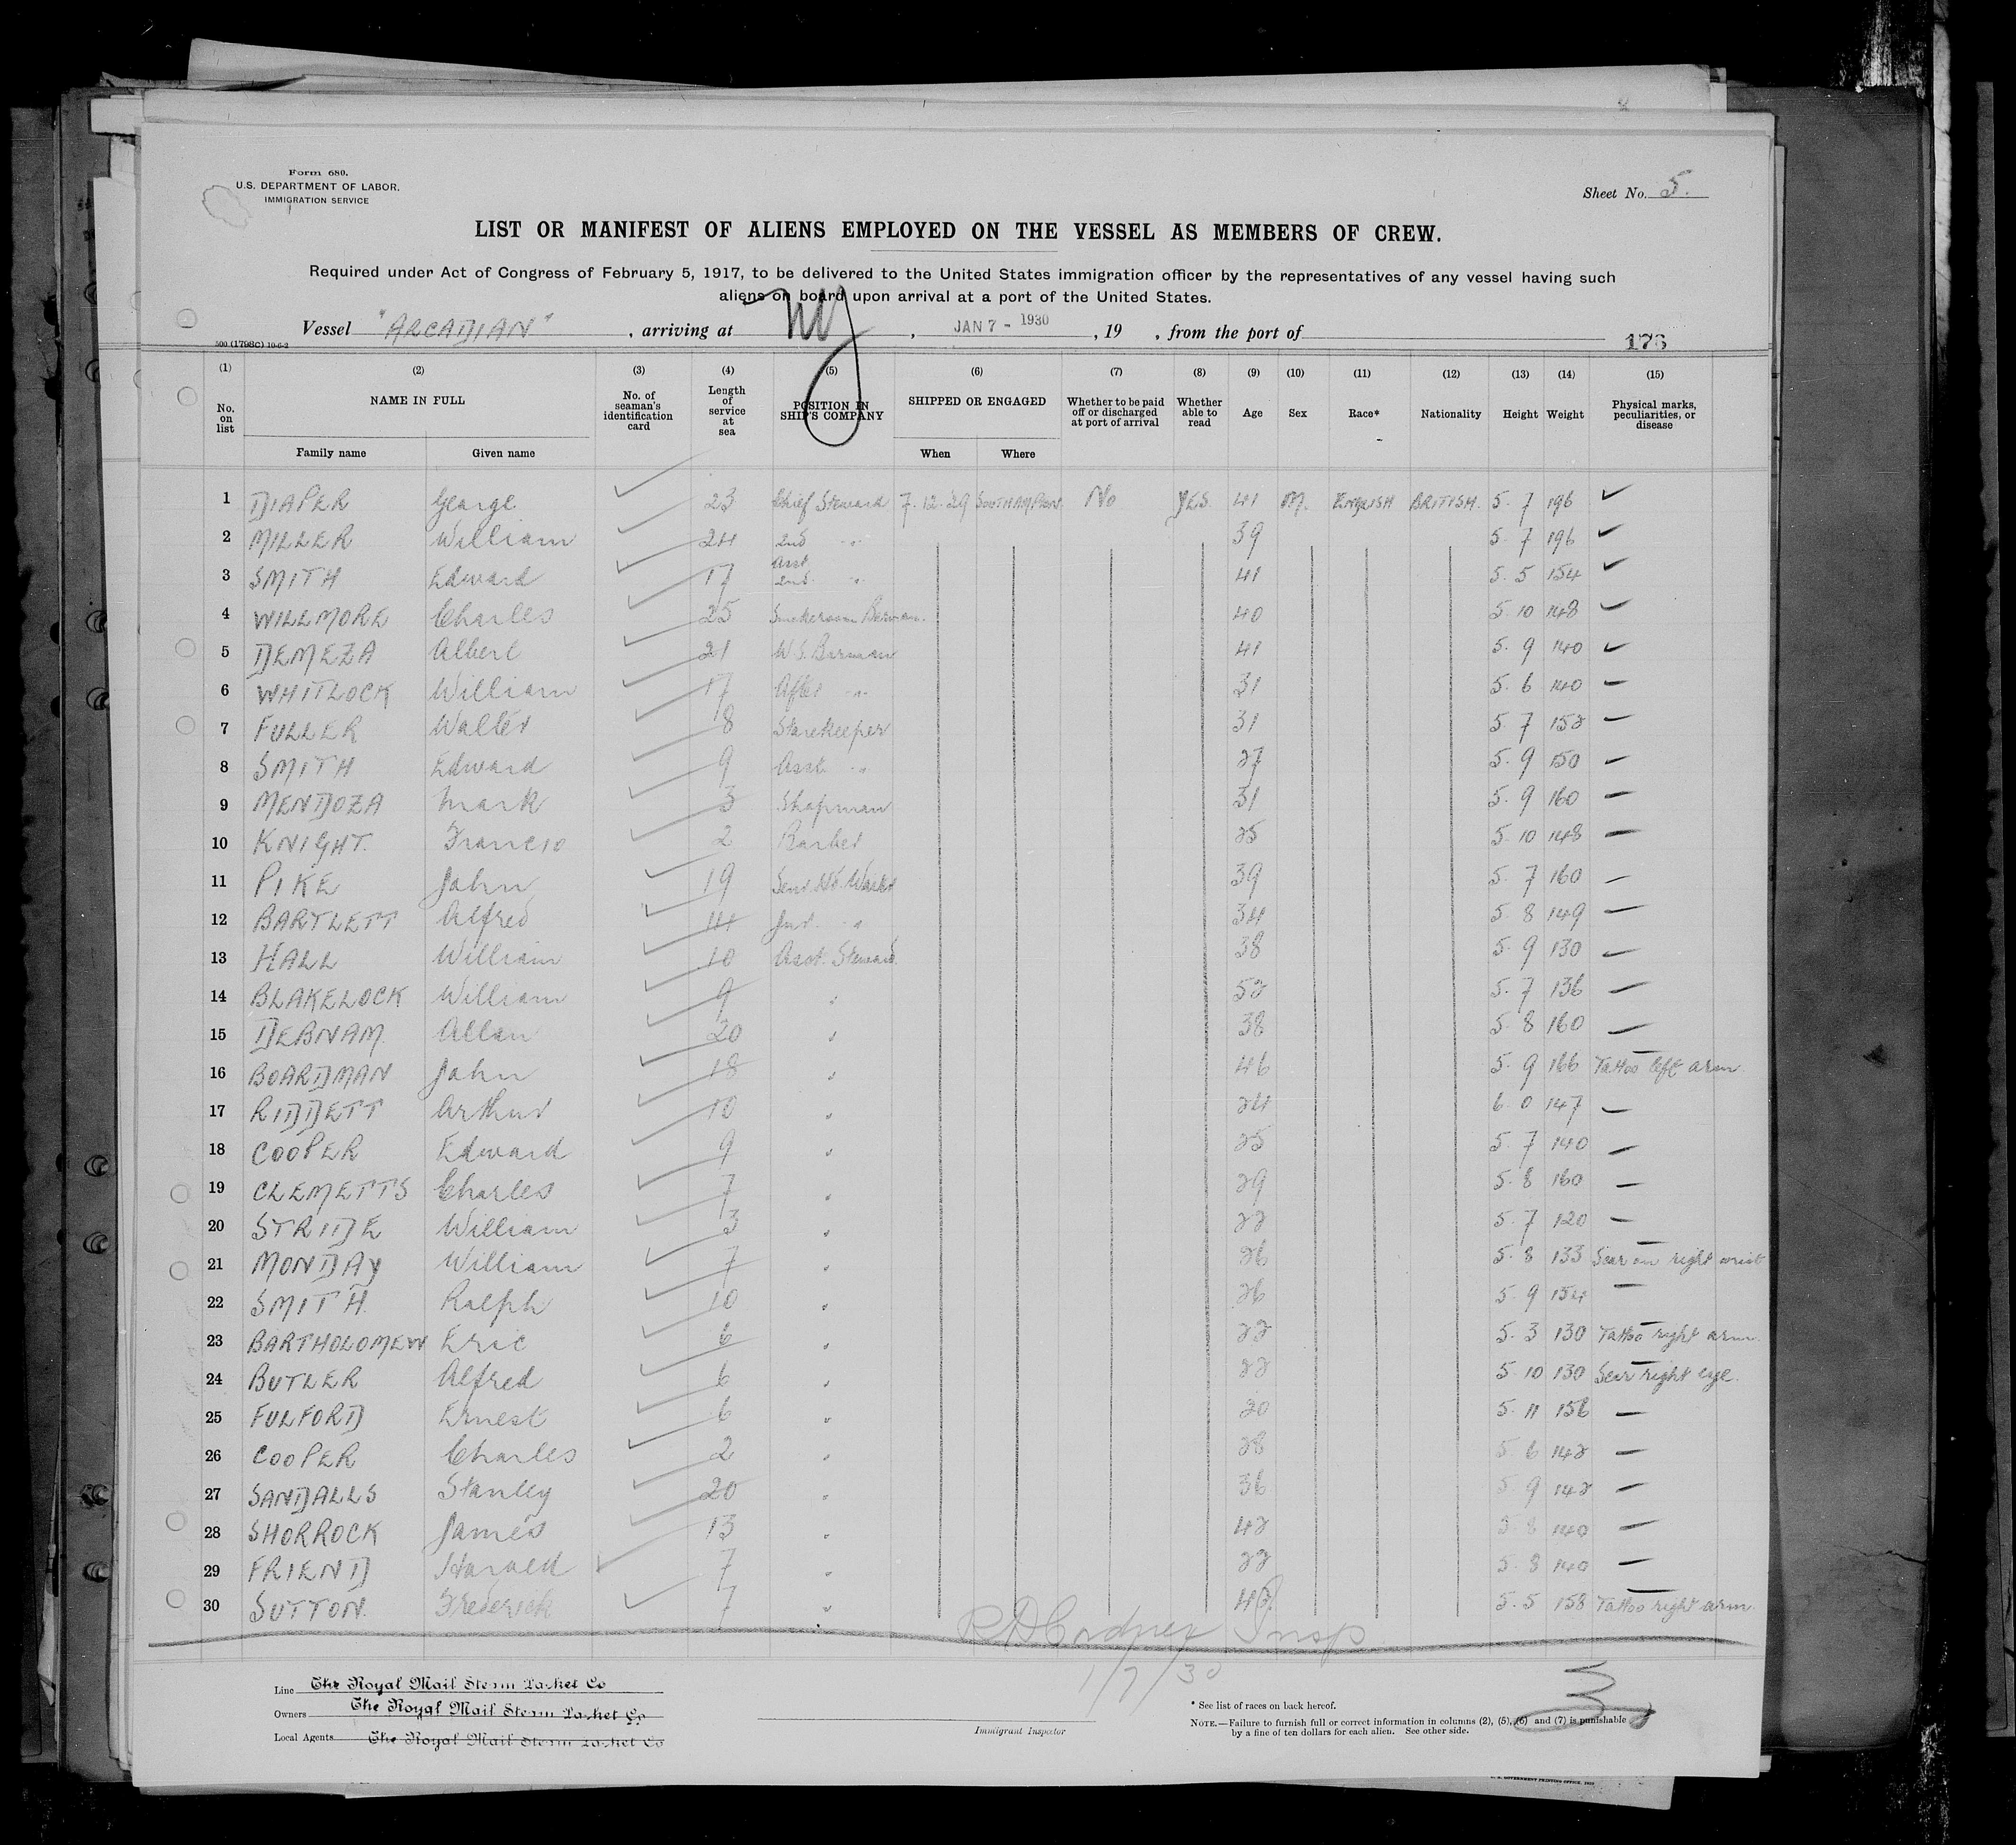 Form 680.
U.S. DEPARTMENT OF LABOR.
IMMIGRATION SERVICE
Sheet No. 5.
LIST OR MANIFEST OF ALIENS EMPLOYED ON THE VESSEL AS MEMBERS OF CREW.
Required under Act of Congress of February 5, 1917, to be delivered to the United States immigration officer by the representatives of any vessel having such
aliens on board upon arrival at a port of the United States.
Vessel "ARCADIAN", arriving at NY, JAN 7 - 1930, 19 , from the port of
176
500 (1798C) 10-6-2
(1) (2) (3) (4) (5) (6) (7) (8) (9) (10) (11) (12) (13) (14) (15)
No. on list NAME IN FULL No. of seaman's identification card Length of service at sea POSITION IN SHIP'S COMPANY SHIPPED OR ENGAGED Whether to be paid off or discharged at port of arrival Whether able to read Age Sex Race* Nationality Height Weight Physical marks, peculiarities, or disease
Family name Given name When Where
1 DIAPER George 23 Chief Steward 7.12.29 SOUTHAMPTON No YES 41 M. ENGLISH BRITISH. 5. 7 196
2 MILLER William 24 2nd " 39 5. 7 196
3 SMITH Edward 17 Asst 2nd " 41 5. 5 154
4 WILLMORE Charles 25 Smokeroom Barman. 40 5. 10 148
5 DEMEZA Albert 21 W.S. Barman 41 5. 9 140
6 WHITLOCK William 17 After " 31 5. 6 140 —
7 FULLER Walter 8 Storekeeper 31 5. 7 152 —
8 SMITH Edward 9 Asst " 27 5. 9 150 —
9 MENDOZA Mark 3 Shopman 31 5. 9 160 —
10 KNIGHT. Francis 2 Barber 25 5. 10 148 —
11 PIKE John 19 39 5. 7 160 —
12 BARTLETT Alfred 14 Jnr. " 34 5. 8 149 —
13 HALL William 10 Asst. Steward. 38 5. 9 130 —
14 BLAKELOCK William 9 " 52 5. 7 136 —
15 DEBNAM. Allan 20 " 38 5. 8 160 —
16 BOARDMAN John 18 " 46 5. 9 166 Tattoo left arm.
17 RIDDETT Arthur 10 " 24 6. 0 147 —
18 COOPER Edward 9 " 25 5. 7 140 —
19 CLEMETTS Charles 7 " 29 5. 8 160 —
20 STRIDE William 3 " 22 5. 7 120 —
21 MONDAY William 7 " 26 5. 8 133 Scar on right wrist
22 SMITH. Ralph 10 " 26 5. 9 154 —
23 BARTHOLOMEW Eric 6 " 22 5. 3 130 Tattoo right arm.
24 BUTLER Alfred 6 " 22 5. 10 130 Scar right eye.
25 FULFORD Ernest 6 " 20 5. 11 156 —
26 COOPER Charles 2 " 28 5. 6 142 —
27 SANDALLS Stanley 20 " 36 5. 9 142 —
28 SHORROCK James 13 " 42 5. 8 140 —
29 FRIEND Harold 7 " 22 5. 8 140 —
30 SUTTON. Frederick 7 " 5. 5 158 Tattoo right arm.
Insp
1/7/30
Line The Royal Mail Steam Packet Co
Owners The Royal Mail Steam Packet Co
Local Agents The Royal Mail Steam Packet Co
Immigrant Inspector
* See list of races on back hereof.
NOTE.—Failure to furnish full or correct information in columns (2), (5), (6) and (7) is punishable
by a fine of ten dollars for each alien. See other side.